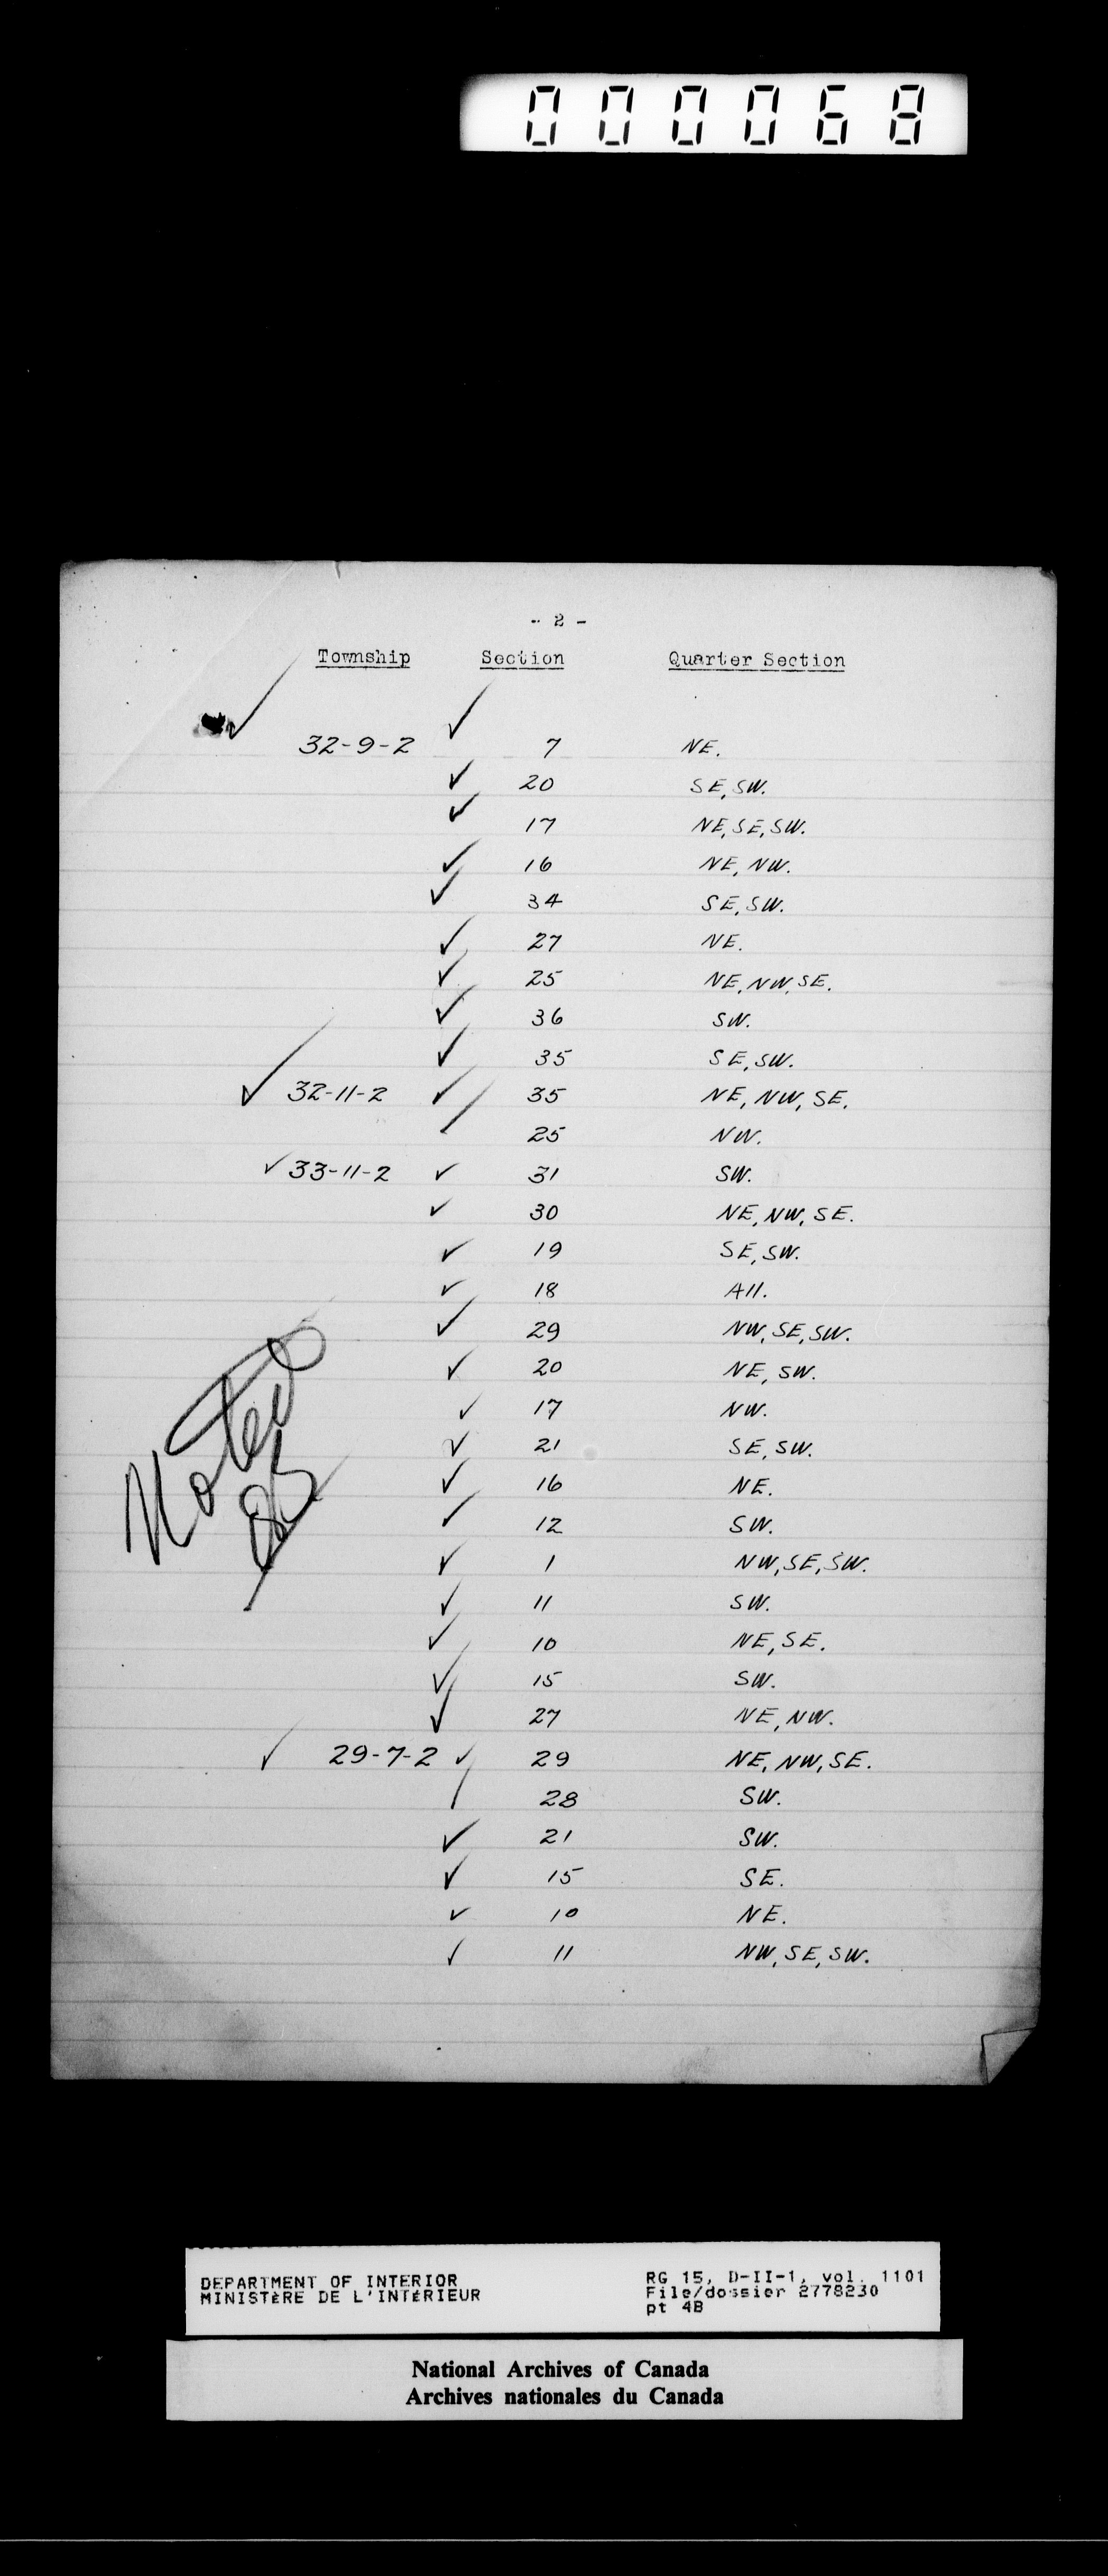 000068
- 2 -
Township Section Quarter Section
✓ 32-9-2 ✓ 7 NE.
✓ 20 SE, SW.
✓ 17 NE, SE, SW.
✓ 16 NE, NW.
✓ 34 SE, SW.
✓ 27 NE.
✓ 25 NE, NW, SE.
✓ 36 SW.
✓ 35 SE, SW.
✓ 32-11-2 ✓ 35 NE, NW, SE.
✓ 25 NW.
✓ 33-11-2 ✓ 31 SW.
✓ 30 NE, NW, SE.
✓ 19 SE, SW.
✓ 18 All.
✓ 29 NW, SE, SW.
✓ 20 NE, SW.
✓ 17 NW.
✓ 21 SE, SW.
✓ 16 NE.
✓ 12 SW.
✓ 1 NW, SE, SW.
✓ 11 SW.
✓ 10 NE, SE.
✓ 15 SW.
✓ 27 NE, NW.
✓ 29-7-2 ✓ 29 NE, NW, SE.
✓ 28 SW.
✓ 21 SW.
✓ 15 SE.
✓ 10 NE.
✓ 11 NW, SE, SW.
Noted
DEPARTMENT OF INTERIOR
MINISTÈRE DE L'INTÉRIEUR
RG 15, D-II-1, vol. 1101
File/dossier 2778230
pt 4B
National Archives of Canada
Archives nationales du Canada